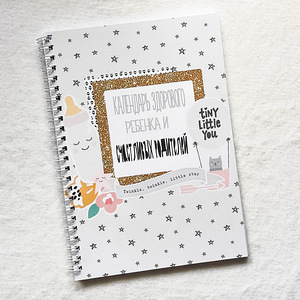 КАЛЕНДАРЬ ЗДОРОВОГО
РЕБЕНКА И
СЧАСТЛИВЫХ РОДИТЕЛЕЙ
tiNY
LittLe
YOU
Twinkle, twinkle, little star